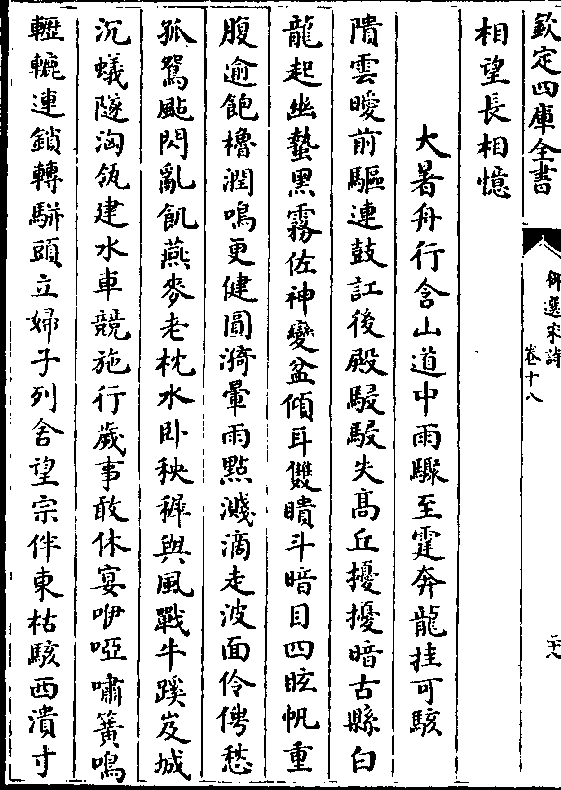 欽定四庫全書
御選宋詩
卷十八
二十八
相望長相憶
大暑舟行含山道中雨驟至霆奔龍挂可駭
隤雲曖前驅連鼓訌後殿駸駸失高丘擾擾暗古縣白
龍起幽蟄黑霧佐神變盆傾耳雙瞶斗暗目四眩帆重
腹逾飽櫓潤鳴更健圓漪暈雨點濺滴走波面伶俜愁
孤鴛颭閃亂飢燕麥老枕水卧秧穉與風戰牛蹊岌城
沉蟻隧洶瓴建水車競施行歲事敢休宴咿啞嘯簧鳴
轣轆連鎖轉駢頭立婦子列舍望宗伴東枯駭西潰寸